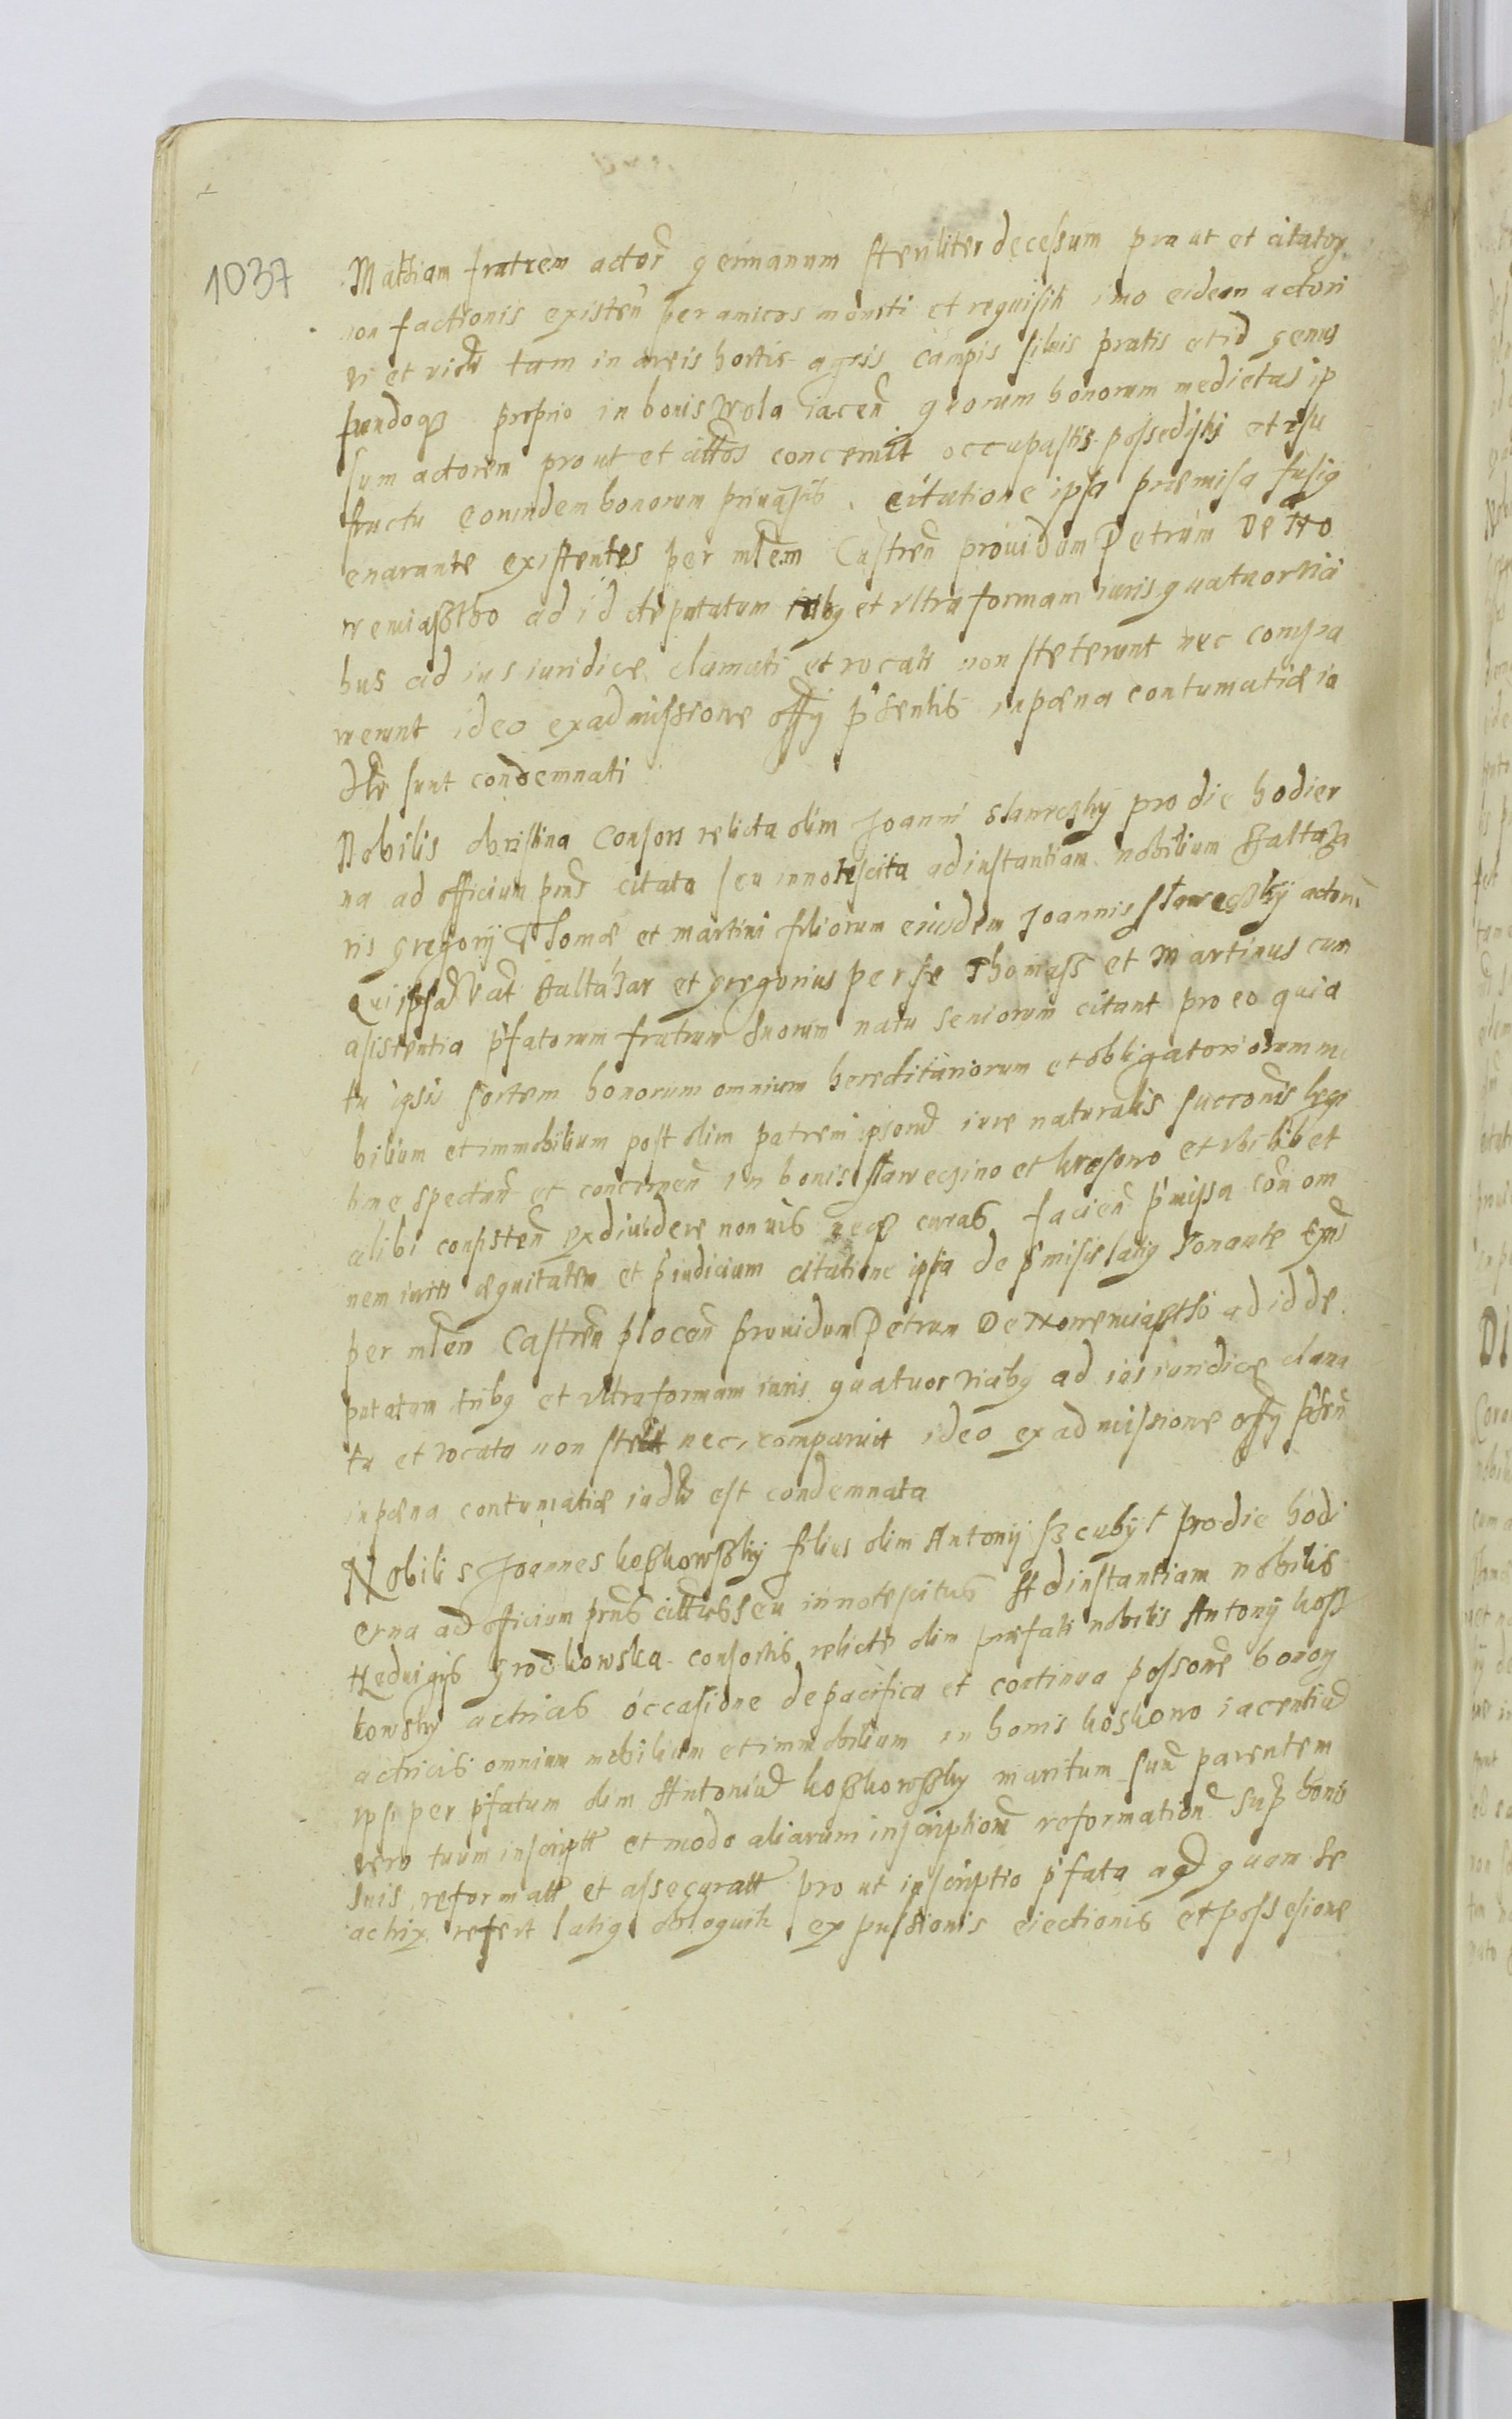 1037
Mathiam fratrem actor germanum steriliter decessum prout et citator
non factionis existen per amicos moniti et requisiti imo eidem actori
vi et vide tam in areis hortis agris campis silvis pratis et id genus
fundoq proprio in bonis Wola iacen quorum bonorum medietas ip
sum actorem prout et cittos concernit occupastis possedistis et usu
fructu eorundem bonorum privastis. citatione ipsa praemissa fusiq
enarrante existentes per mlem Castren providum Petrum De No
wemiasstho ad id deputatum tribq et ultra formam iuris quatuor via
bus ad ius iuridice clamati et vocati non steterunt nec compa
ruerunt ideo ex admissione offij psentis in paena contumatiae iu
dtr sunt condemnati
Nobilis christina Consors relicta olim Joanni Slaweczky pro die hodier
na ad officium pns citata seu innotescita ad instantiam nobilium Baltaza
ris gregorij Thomae et martini filiorum eiusdem Joannis Slaweczkij actorum
Qui ipsa Baltazar et gregorius per se Thomass et Martinus cum
asistentia pfatorum fratrum suorum natu seniorum citant pro eo quia
tu ipsis sortem bonorum omnium hereditariorum et obligatoriorum mo
bilium et immobilium post olim patrem ipsorum iure naturalis succonis legi
time spectan et concernen in bonis Slaweczino et et ubilibet
alibi consisten exdividere non vis neq curas facien pmissa con om
nem iuris aequitatem et piudicium citatione ipsa de pmissis latiq sonante exns
per mlem Castren plocen providum Petrum De Nowemiastho ad id de
putatum tribq et ultra formam iuris quatuor viabq ad ius iuridice clama
ta et vocata non stetit nec comparuit ideo ex admissione offij psen
in paena contumatiae iudtr est condemnata
Nobilis Joannes kosskowsskij filius olim Antonij pro die hodi
erna ad officium pns cittus seu innotescitus Ad instantiam nobilis
Hedvigis grodkowska consortis relicte olim praefati nobilis Antonij koss
kowsky actricis occasione de pacifica et continua possone bonor
actricis omnium mobilium et immobilium in bonis koskowo iacentium
ipsi per pfatum olim Antonium kosskowssky maritum suum parentem
vero tuum inscriptt et modo aliarum inscription reformation sup bonis
suis reformatt et assecuratt prout inscriptio pfata ad quam se
actrix refert latiq obloquit expulsionis eiectionis et possesione